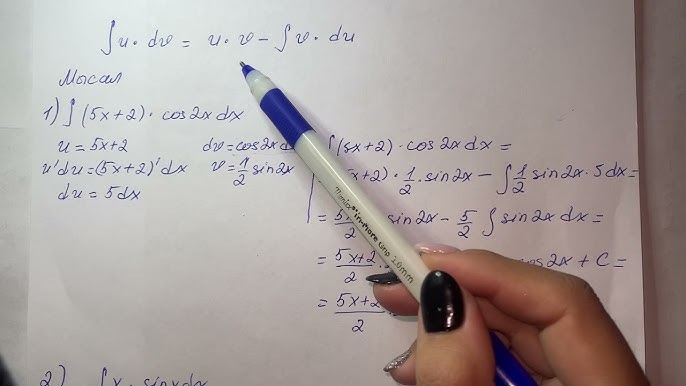 ∫u· dv = u· v - ∫v· du
Мысал
1) ∫(5x+2)· cos2x dx
u = 5x+2 dv=cos2x
u'du=(5x+2)'dx v=1/2 sin2x
du = 5dx
(5x+2)·cos2x dx=
x+2)·1/2·sin2x - ∫1/2 sin2x·5dx=
= sin2x - 5/2 ∫ sin2x dx=
= 5x+2/2 cos2x + C =
= 5x+2/2
2) ∫x· sinx dx
mix in-more Grip 1.0mm